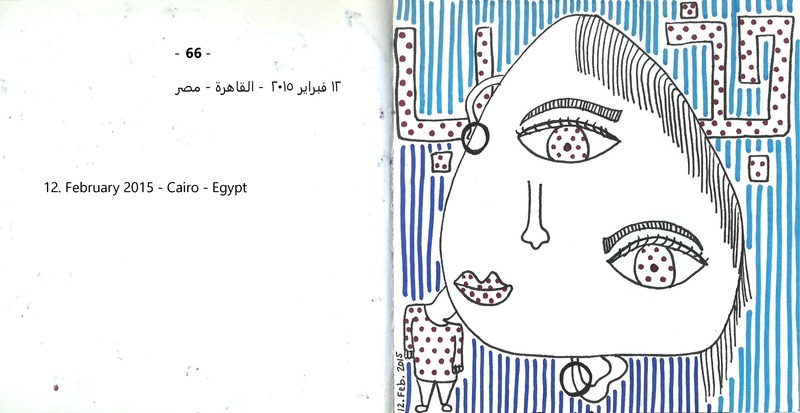 - 66 -
١٢ فبراير ٢٠١٥ - القاهرة - مصر
12. February 2015 - Cairo - Egypt
12. Feb. 2015